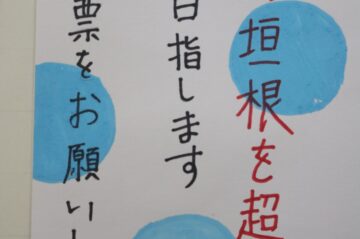 垣根を超
目指します
票をお願いし